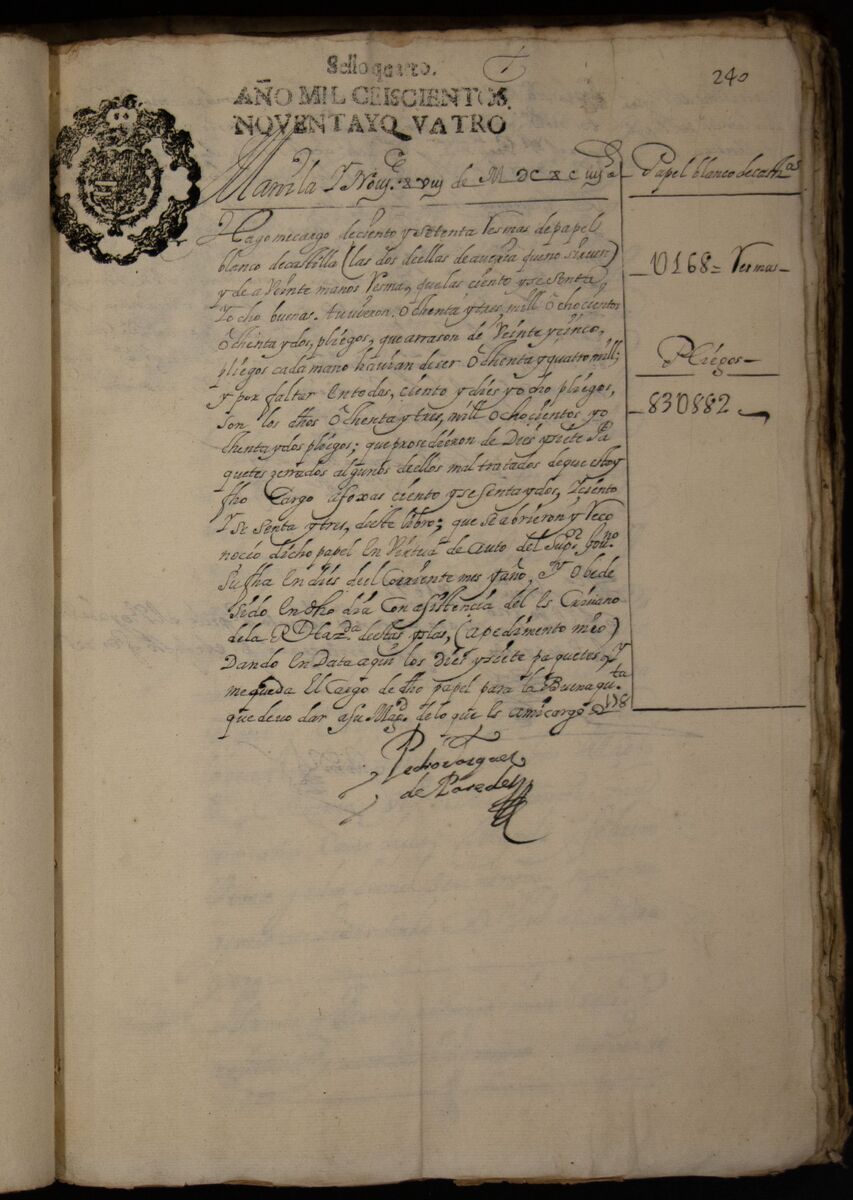 Sello quarto.
AÑO MIL CEISCIENTOS
NOVENTA Y QVATRO
240
Manila Y Novi.e xviij de M DC XC iiij a
Papel blanco decast.as
Hago me cargo de ciento y setenta Resmas de papel
blanco decastilla (las dos deellas deaveria que no sirven)
y de a Veinte manos Resma, que las ciento y se senta
Y ocho buenas. tuvieron, ochenta y tres, mill ochocientos
ochenta y dos, pliegos, que arrason de Veinte y sinco,
pliegos cada mano havian de ser ochenta y quatro mill;
y por faltar en todas, ciento y dies y ocho pliegos,
son los dhos ochenta y tres, mill ochocientos yo
chenta y dos pliegos; que prosedieron de Dies y siete Pa
quetes serrados algunos deellos mal tratados de que estoy
fho Cargo afoxas ciento y se senta y dos, Y ciento
Y se senta y tres, deeste libro; que se abrieron y Reco
nocio dicho papel en Virtud de auto del Sup.or gov.no
su fha en dies del Corriente mes y año, Y obede
sido en dho dia Con asistencia del es Crivano
de la R.l Haz.da destas yslas, (a pedimento mio)
Dando en Data aqui los dies y siete paquetes Y
me queda El Cargo de dho papel para la Buena qu.ta
que devo dar a su Mag.d delo que es amicargo
118
0168= Resmas
Pliegos
830882
Pedro Vasques
de Paredes